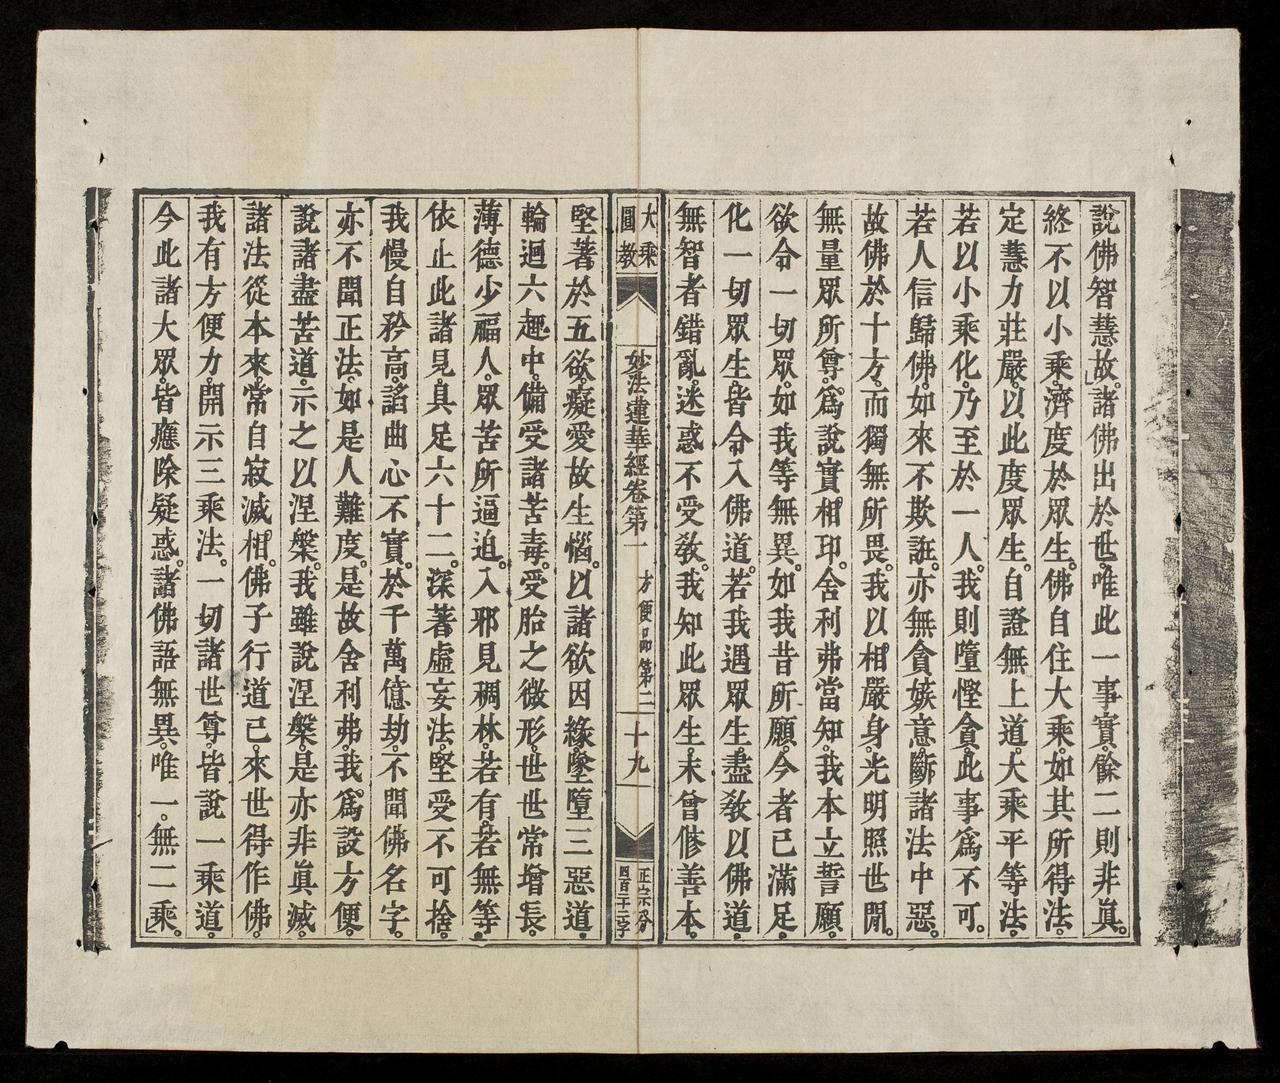 說佛智慧故。諸佛出於世。唯此一事實。餘二則非眞。
終不以小乘。濟度於眾生。佛自住大乘。如其所得法。
定慧力莊嚴。以此度眾生。自證無上道。大乘平等法。
若以小乘化。乃至於一人。我則墮慳貪。此事爲不可。
若人信歸佛。如來不欺誑。亦無貪嫉意。斷諸法中惡。
故佛於十方。而獨無所畏。我以相嚴身。光明照世間。
無量眾所尊。爲說實相印。舍利弗當知。我本立誓願。
欲令一切眾。如我等無異。如我昔所願。今者已滿足。
化一切眾生。皆令入佛道。若我遇眾生。盡敎以佛道。
無智者錯亂。迷惑不受敎。我知此眾生。未曾修善本。
大乘
圓敎
妙法蓮華經卷第一 方便品第二 十九
正宗分
四百二十二字
堅著於五欲。癡愛故生惱。以諸欲因緣。墜墮三惡道。
輪迴六趣中。備受諸苦毒。受胎之微形。世世常增長。
薄德少福人。眾苦所逼迫。入邪見稠林。若有若無等。
依止此諸見。具足六十二。深著虛妄法。堅受不可捨。
我慢自矜高。諂曲心不實。於千萬億劫。不聞佛名字。
亦不聞正法。如是人難度。是故舍利弗。我爲設方便。
說諸盡苦道。示之以涅槃。我雖說涅槃。是亦非眞滅。
諸法從本來。常自寂滅相。佛子行道已。來世得作佛。
我有方便力。開示三乘法。一切諸世尊。皆說一乘道。
今此諸大眾。皆應除疑惑。諸佛語無異。唯一。無二乘。